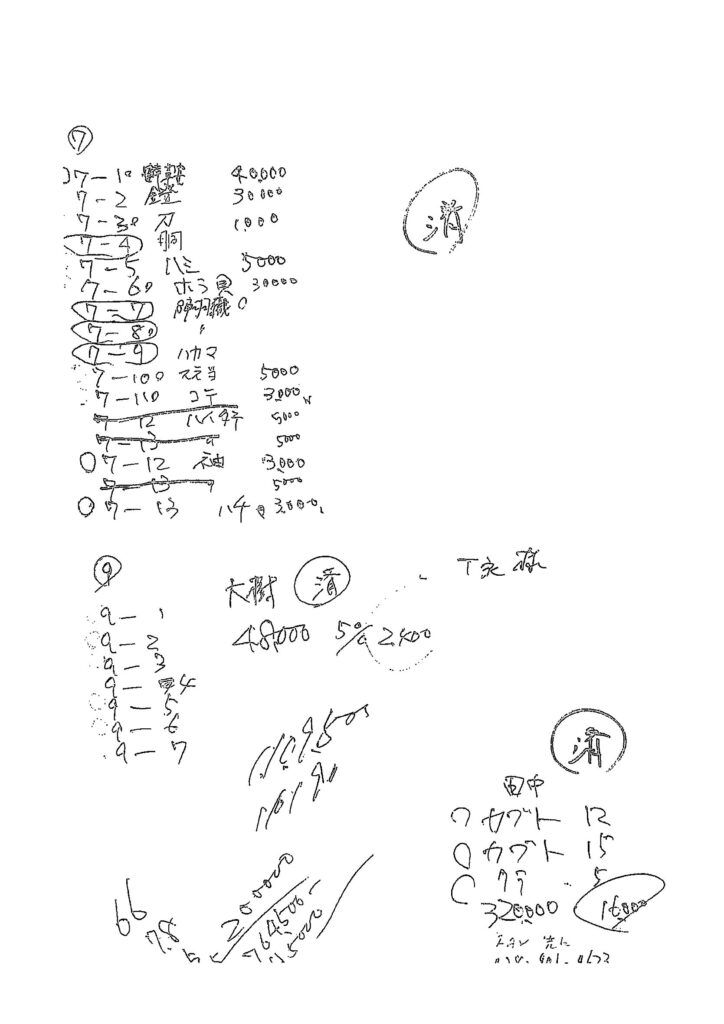 ⑦
7-1 40,000
7-2 鐙 30000
7-3 刀 1,000
済
7-4 胴
7-5 ハミ 5000
7-6 ホラ貝 30000
7-7
7-8 〃
7-9 ハカマ
7-10 スネ当 5000
7-11 コテ 3,000
7-12 5000
7-13 〃 5000
○7-12 袖 3,000
7-13 〃 5000
○7-13 ハチ 3,000
⑨
大樹 済
T家 様
48,000 5% 2400
9-1
9-2
9-3
9-4
9-5
9-6
9-7
済
田中
○カブト 12
○カブト 15
○クラ 5
320000 16000
200000
764500
15000
66
78